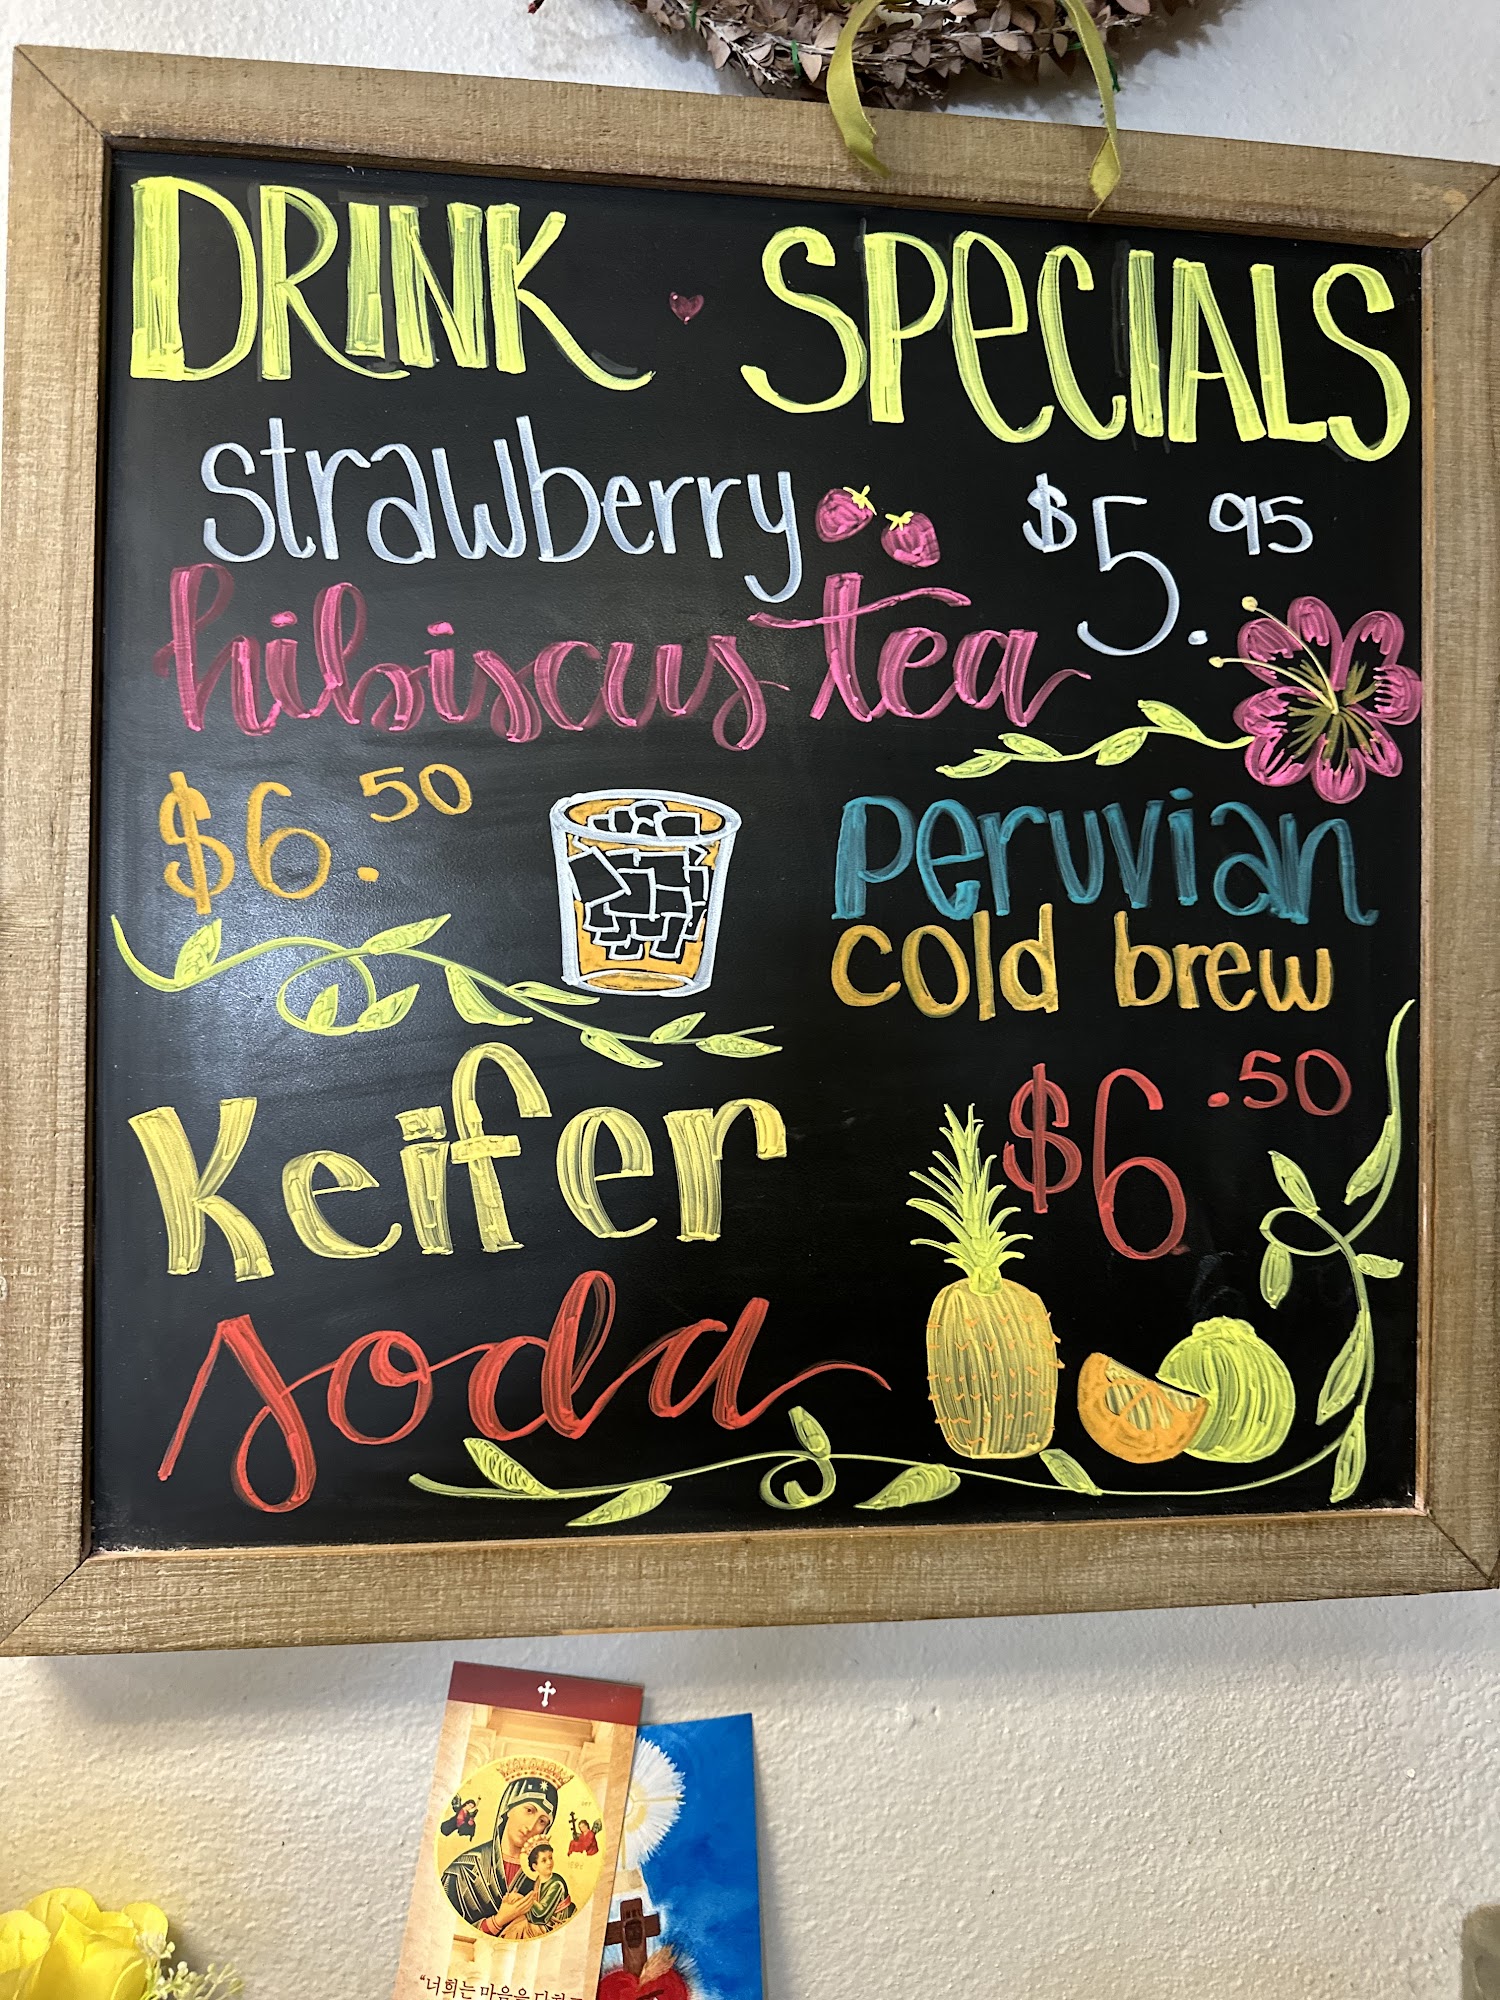 DRINK SPECIALS
strawberry $5.95
hibiscus tea
$6.50
peruvian
cold brew
Keifer $6.50
soda
"너희는 마음을